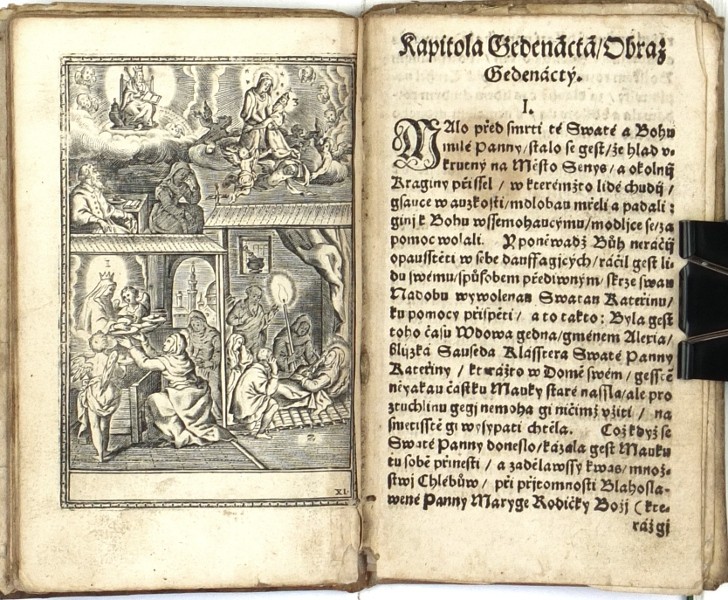 1
2
3
XI.
Kapitola Gedenáctá/ Obraz
Gedenáctý.
I.
MAlo před smrti té Swaté a Bohu
milé Panny/ stalo se gest/ že hlad v-
krutný na Město Senys/ a okolnij
Kraginy přissel / w kterémžto lidé chudij /
gsauce w auzkosti/ mdlobau mřeli a padali :
ginij k Bohu wssemohaucýmu/ modljce se/ za
pomoc wolali. Y poněwadž Bůh neráčij
opausstěti w sebe dauffagjcých/ ráčil gest li-
du swému/ spůsobem předjwným/ skrze swau
Nádobu wywolenau Swatau Kateřinu/
ku pomocy přispěti/ a to takto: Byla gest
toho času Wdowa gedna/ gménem Alexia/
blijzká Sauseda Klásstera Swaté Panny
Kateřiny / kterážto w Domě swém / gesstě
něyakau částku Mauky staré nassla/ ale pro
ztuchlinu gegj nemoha gi ničjmž vžiti / na
smetisstě gi wysypati chtěla. Což když se
Swaté Panny doneslo/ kázala gest Mauku
tu sobě přinesti / a zadělawssy kwas/ množ-
stwj Chlébůw / při přjtomnosti Blahosla-
wené Panny Maryge Rodičky Božj ( kte-
ráž gj